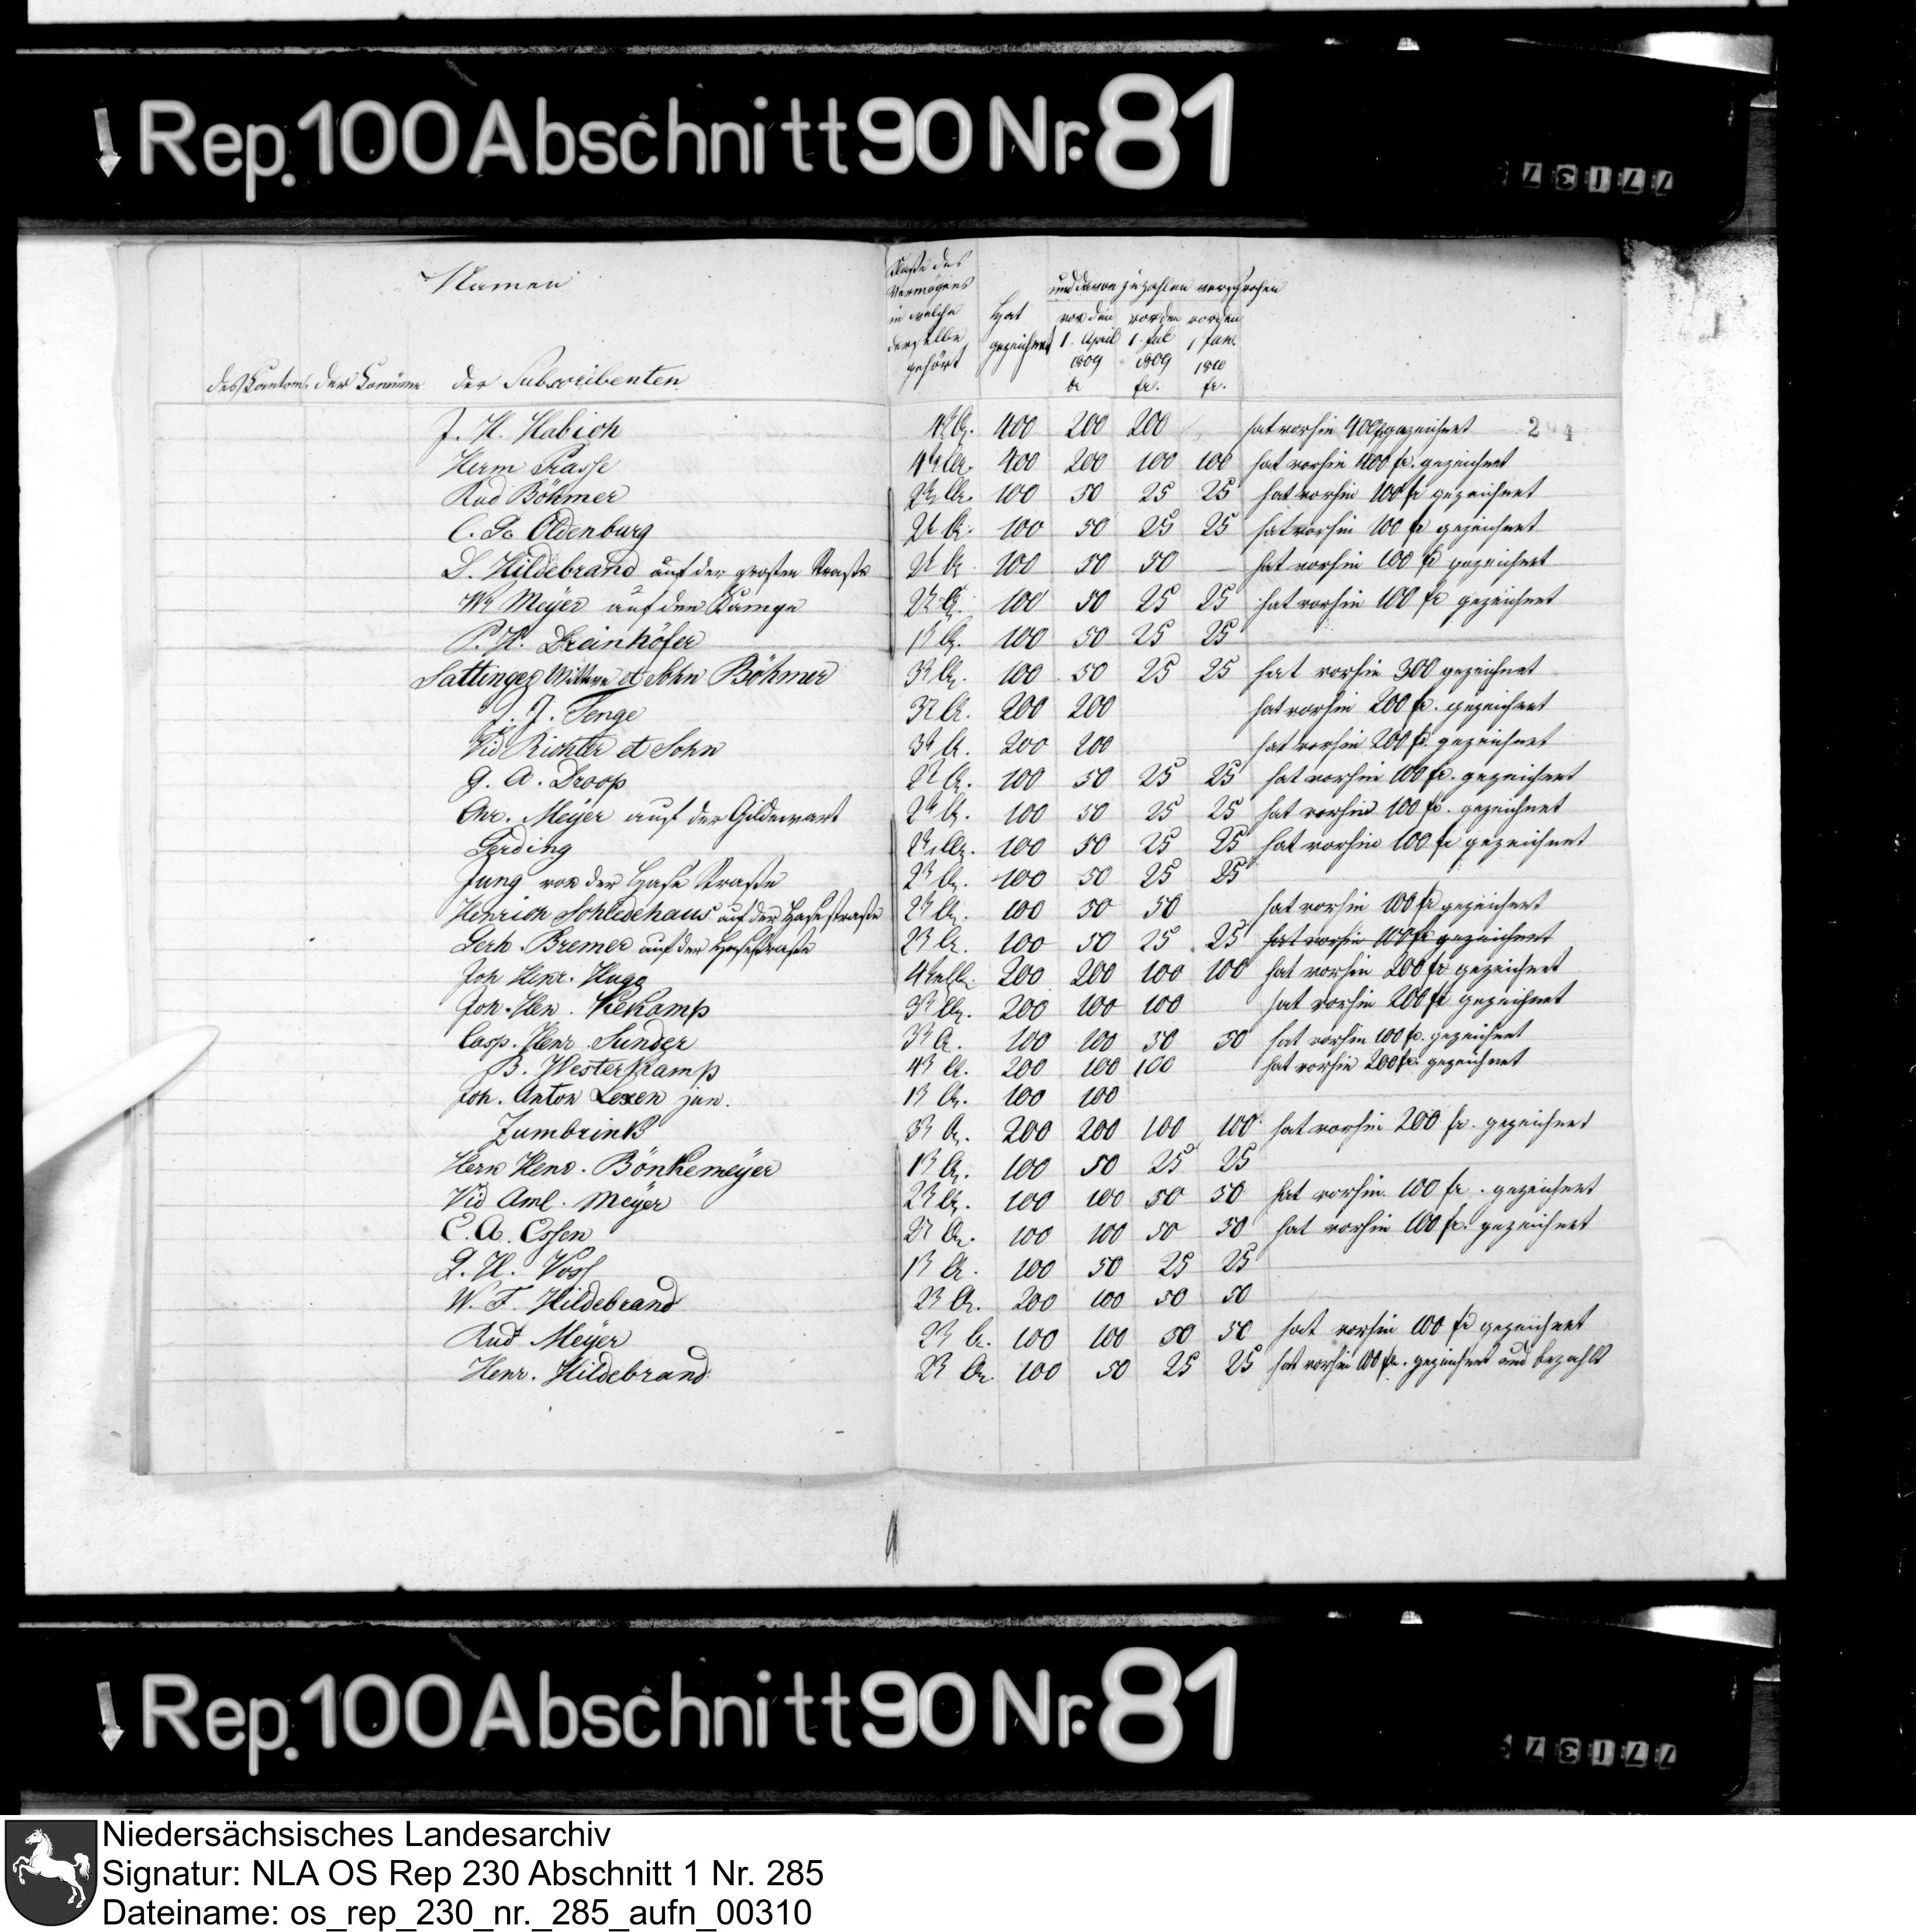 Rep. 100 Abschnitt 90 Nr. 81
77137
Namen
des Kantons der Comüne der Subscribenten
Klaße des Vermögens in welche derselbe gehört
Hat gezeichnet
und davon zu zahlen versprochen
vor den 1. April 1809 fr.
vor den 1. Jul 1809 fr.
vor den 1 Jan. 1810 fr.
J. H. Habich 4 Cl. 400 200 200 hat vorhin 400 fr gezeichnet
Herm Prasse 4 Cl. 400 200 100 100 hat vorhin 400 fr. gezeichnet
Rud Böhmer 2 Cl. 100 50 25 25 hat vorhin 100 fr gezeichnet
C. G. Oldenburg 2t Cl. 100 50 25 25 hat vorhin 100 fr gezeichnet
D. Hildebrand auf der großen Straße 2t Cl. 100 50 50 — hat vorhin 100 fr gezeichnet
W. Meÿer auf den Kampe 2t Cl. 100 50 25 25 hat vorhin 100 fr gezeichnet
P. H. Dreinhöfer 1 Cl. 100 50 25 25
Sattinger Wittwe et Sohn Böhmer 3 Cl. 100 50 25 25 hat vorhin 300 gezeichnet
J. J. Tenge 3 Cl. 200 200 hat vorhin 200 fr. gezeichnet
Vid Richter et Sohn 3 Cl. 200 200 hat vorhin 200 fr. gezeichnet
G. A. Droop 2t Cl. 100 50 25 25 hat vorhin 100 fr. gezeichnet
Chr. Meÿer auf der Gildewart 2 Cl. 100 50 25 25 hat vorhin 100 fr. gezeichnet
Gerding 2 Cl. 100 50 25 25 hat vorhin 100 fr gezeichnet
Jung vor der Hase Straße 2 Cl. 100 50 25 25
Henrich Schledehaus auf der Hasestraße 2 Cl. 100 50 50 hat vorhin 100 fr gezeichnet
Gerh. Bremer auf der Hasestraße 2 Cl. 100 50 25 25 hat vorhin 100 fr gezeichnet
Joh Henr. Hugo 4 Cl. 200 200 100 100 hat vorhin 200 fr gezeichnet
Joh. Hen. Kekamp 3 Cl. 200 100 100 hat vorhin 200 fr gezeichnet
Casp. Henr. Sunder 3 Cl. 100 100 50 50 hat vorhin 100 fr. gezeichnet
B. Westerkamp 4 Cl. 200 100 100 hat vorhin 200 fr. gezeichnet
Joh. Anton Lexen jun. 1 Cl. 100 100
Zumbrink 3 Cl. 200 200 100 100 hat vorhin 200 fr. gezeichnet
Herm Henr. Bönkemeÿer 1 Cl. 100 50 25 25
Vid Aml. Meÿer 2 Cl. 100 100 50 50 hat vorhin 100 fr. gezeichnet
C. A. Essen 2t Cl. 100 100 50 50 hat vorhin 100 fr. gezeichnet
G. H. Voss 1 Cl. 100 50 25 25
W. F. Hildebrand 2 Cl. 200 100 50 50
Rud Meÿer 2 Cl. 100 100 50 50 hat vorhin 100 fr gezeichnet
Henr. Hildebrand 2 Cl. 100 50 25 25 hat vorhin 100 fr. gezeichnet und bezahlt
Rep. 100 Abschnitt 90 Nr. 81
77137
Niedersächsisches Landesarchiv
Signatur: NLA OS Rep 230 Abschnitt 1 Nr. 285
Dateiname: os_rep_230_nr._285_aufn_00310